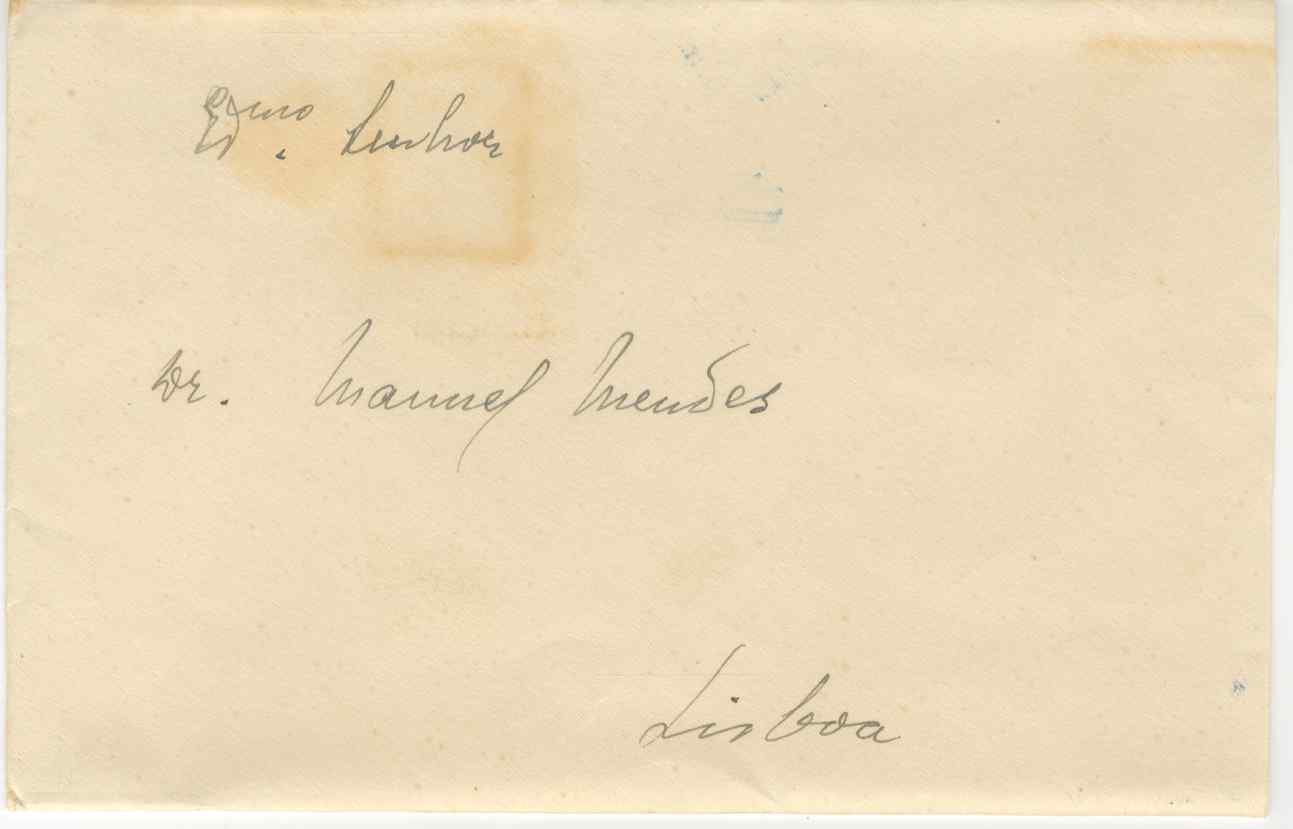 Exmo. Senhor
Dr. Manuel Mendes
Lisboa